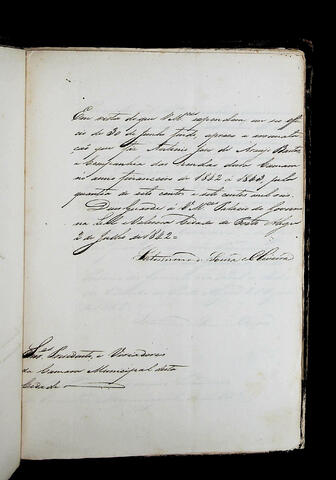 Em vista do que V. M.ces expenderam em seo offi
cio de 30 de Junho findo, approvo a arremata
ção que fez Antonio José de Araujo Bastos
a Companhia das rendas dessa Camara
no anno financeiro de 1842 a 1843, pela
quantia de sete contos e sete centos mil reis.
Deos Guarde a V. M.ces Palacio do Governo
na Leal e Valerosa Cidade de Porto Alegre
2 de Julho de 1842 =
Saturnino de Souza e Oliveira
Snr.es Presidente, e Vereadores
da Camara Municipal desta
Cidade